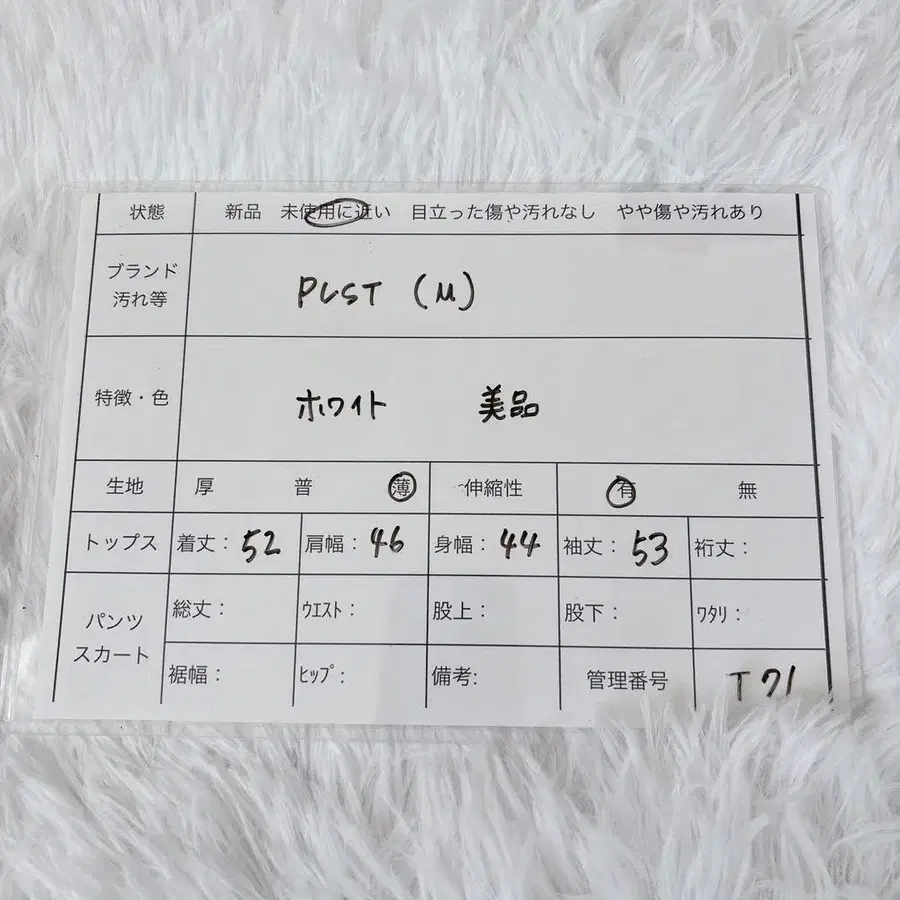 状態 新品 未使用に近い 目立った傷や汚れなし やや傷や汚れあり
ブランド
汚れ等
PLST (M)
特徴・色 ホワイト 美品
生地 厚 普 薄 伸縮性 有 無
トップス 着丈：52 肩幅：46 身幅：44 袖丈：53 裄丈：
パンツ
スカート
総丈： ｳｴｽﾄ： 股上： 股下： ﾜﾀﾘ：
裾幅： ﾋｯﾌﾟ： 備考: 管理番号 T71